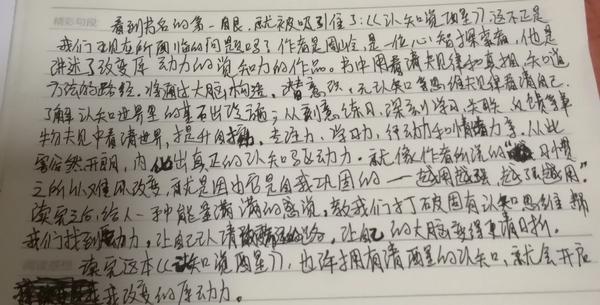 精彩句段
看到书名的第一眼，就被吸引住了：《认知觉醒》，这不正是
我们正现在所面临的问题吗？作者是周岭，是一位心智探索者，他是
讲述了改变原动力的觉知力的作品。书中用看清规律和真相，知道
方法的路径，将通过大脑构造，潜意识，元认知等思维规律看清自己
了解认知世界里的基石出改变；从刻意练习，深刻学习，关联，反馈等事
物规见中看清世界，提升自控，专注力，学习力，行动力和情绪力等。从此
豁然开朗，内化出真正的认知驱动力。就像作者所说的“习惯
之所以难以改变，就是因为它是自我巩固的——越用越强，越强越用”。
读完之后，给人一种能量满满的感觉，教我们打破固有认知思维，帮
我们找到动力，让自己认清，让自己的大脑变得更清晰。
读完这本《认知觉醒》，也许拥有清醒的认知，就会开启
自我改变的原动力。